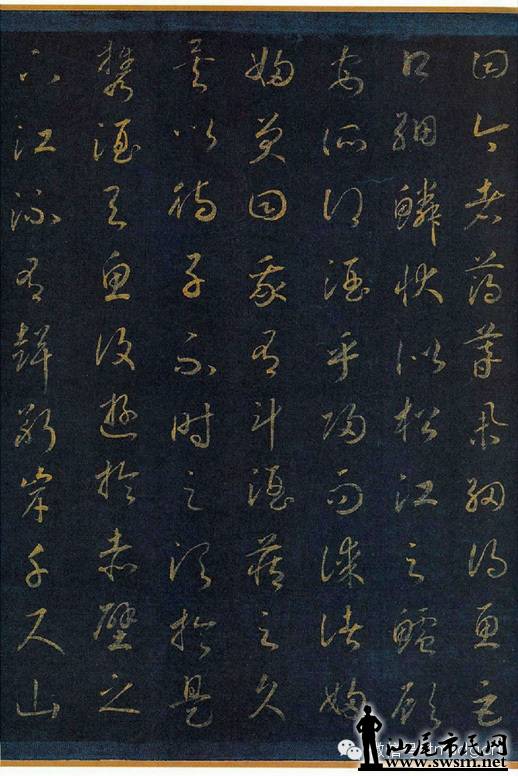 曰今者薄暮舉網得魚巨
口細鱗狀似松江之鱸顧
安所得酒乎歸而謀諸婦
婦笑曰我有斗酒藏之久
矣以待子不時之須於是
攜酒與魚復遊於赤壁之
下江流有聲斷岸千尺山
汕尾市民网
www.swsm.net